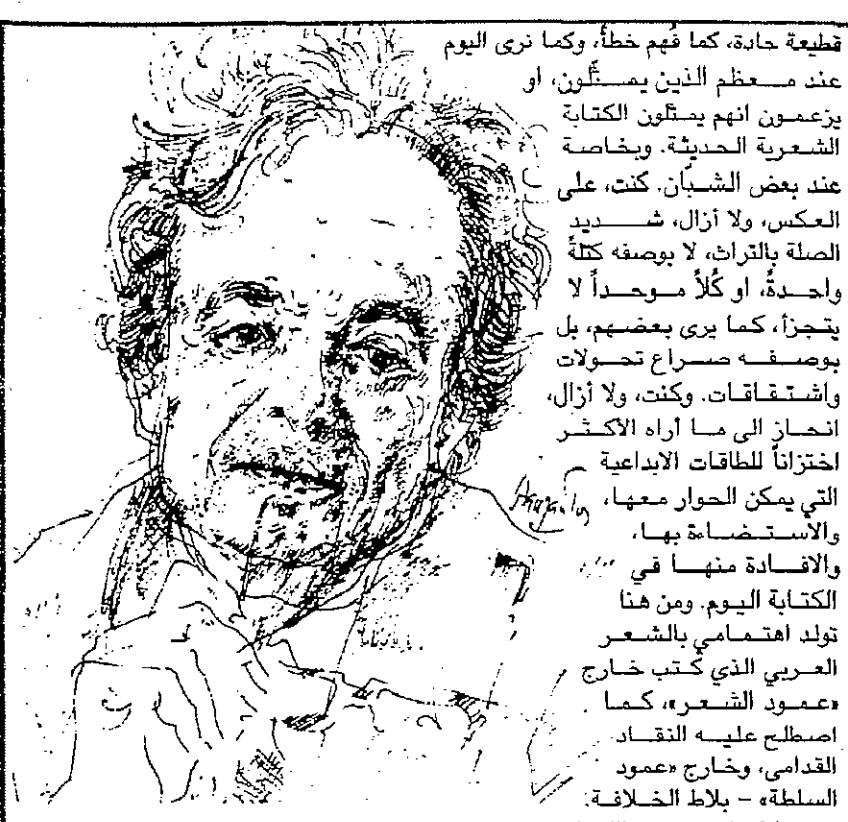 قطيعة حادة، كما فُهم خطأً، وكما نرى اليوم
عند معظم الذين يمثّلون، او
يزعمون انهم يمثلون الكتابة
الشعرية الحديثة. وبخاصة
عند بعض الشبّان. كنت، على
العكس، ولا أزال، شديد
الصلة بالتراث، لا بوصفه كتلةً
واحدةً، او كُلاًّ موحداً لا
يتجزأ، كما يرى بعضهم، بل
بوصفه صراع تحولات
واشتقاقات. وكنت، ولا أزال،
انحاز الى ما أراه الأكثر
اختزاناً للطاقات الابداعية
التي يمكن الحوار معها،
والأستضاءة بها،
والافادة منها في
الكتابة اليوم. ومن هنا
تولد اهتمامي بالشعر
العربي الذي كُتب خارج
«عمود الشعر»، كما
اصطلح عليه النقاد
القدامى، وخارج «عمود
السلطة» – بلاط الخلافة: